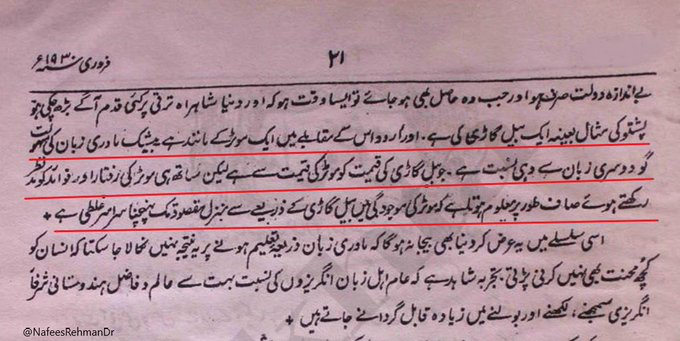 فروری ۱۹۳۰ء
۲۱
بے اندازہ دولت صرف ہو اور جب وہ حاصل بھی ہو جائے تو ایسا وقت ہو کہ اور دنیا شاہراہ ترقی پر کئی قدم آگے بڑھ چکی ہو
پشتو کی مثال بعینہ ایک بیل گاڑی کی ہے۔ اور اردو اس کے مقابلے میں ایک موٹر کے مانند ہے بیشک مادری زبان کی
گو دوسری زبان سے وہی نسبت ہے۔ جو بیل گاڑی کی قیمت کو موٹر کی قیمت سے ہے لیکن ساتھ ہی موٹر کی رفتار اور فوائد کو مد نظر
رکھتے ہوئے صاف طور پر معلوم ہوتا ہے کہ موٹر کی موجودگی میں بیل گاڑی کے ذریعے سے منزل مقصود تک پہنچنا سراسر غلطی ہے +
اسی سلسلے میں یہ عرض کر دینا بھی بیجا نہ ہوگا کہ مادری زبان ذریعۂ تعلیم ہونے پر یہ نتیجہ نہیں نکالا جا سکتا کہ انسان کو
کچھ محنت بھی نہیں کرنی پڑتی۔ تجربہ شاہد ہے کہ عام اہل زبان انگریزوں کی نسبت بہت سے عالم و فاضل ہندوستانی شرفأ
انگریزی سمجھنے، لکھنے اور بولنے میں زیادہ قابل گردانے جاتے ہیں +
@NafeesRehmanDr